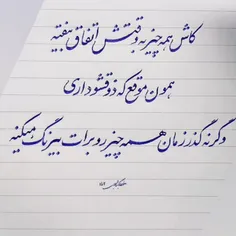 کاش همه چیز به وقتش اتفاق بیفته
همون موقع که ذوقشو داری
وگرنه گذر زمان همه چیز رو برات بیرنگ میکنه